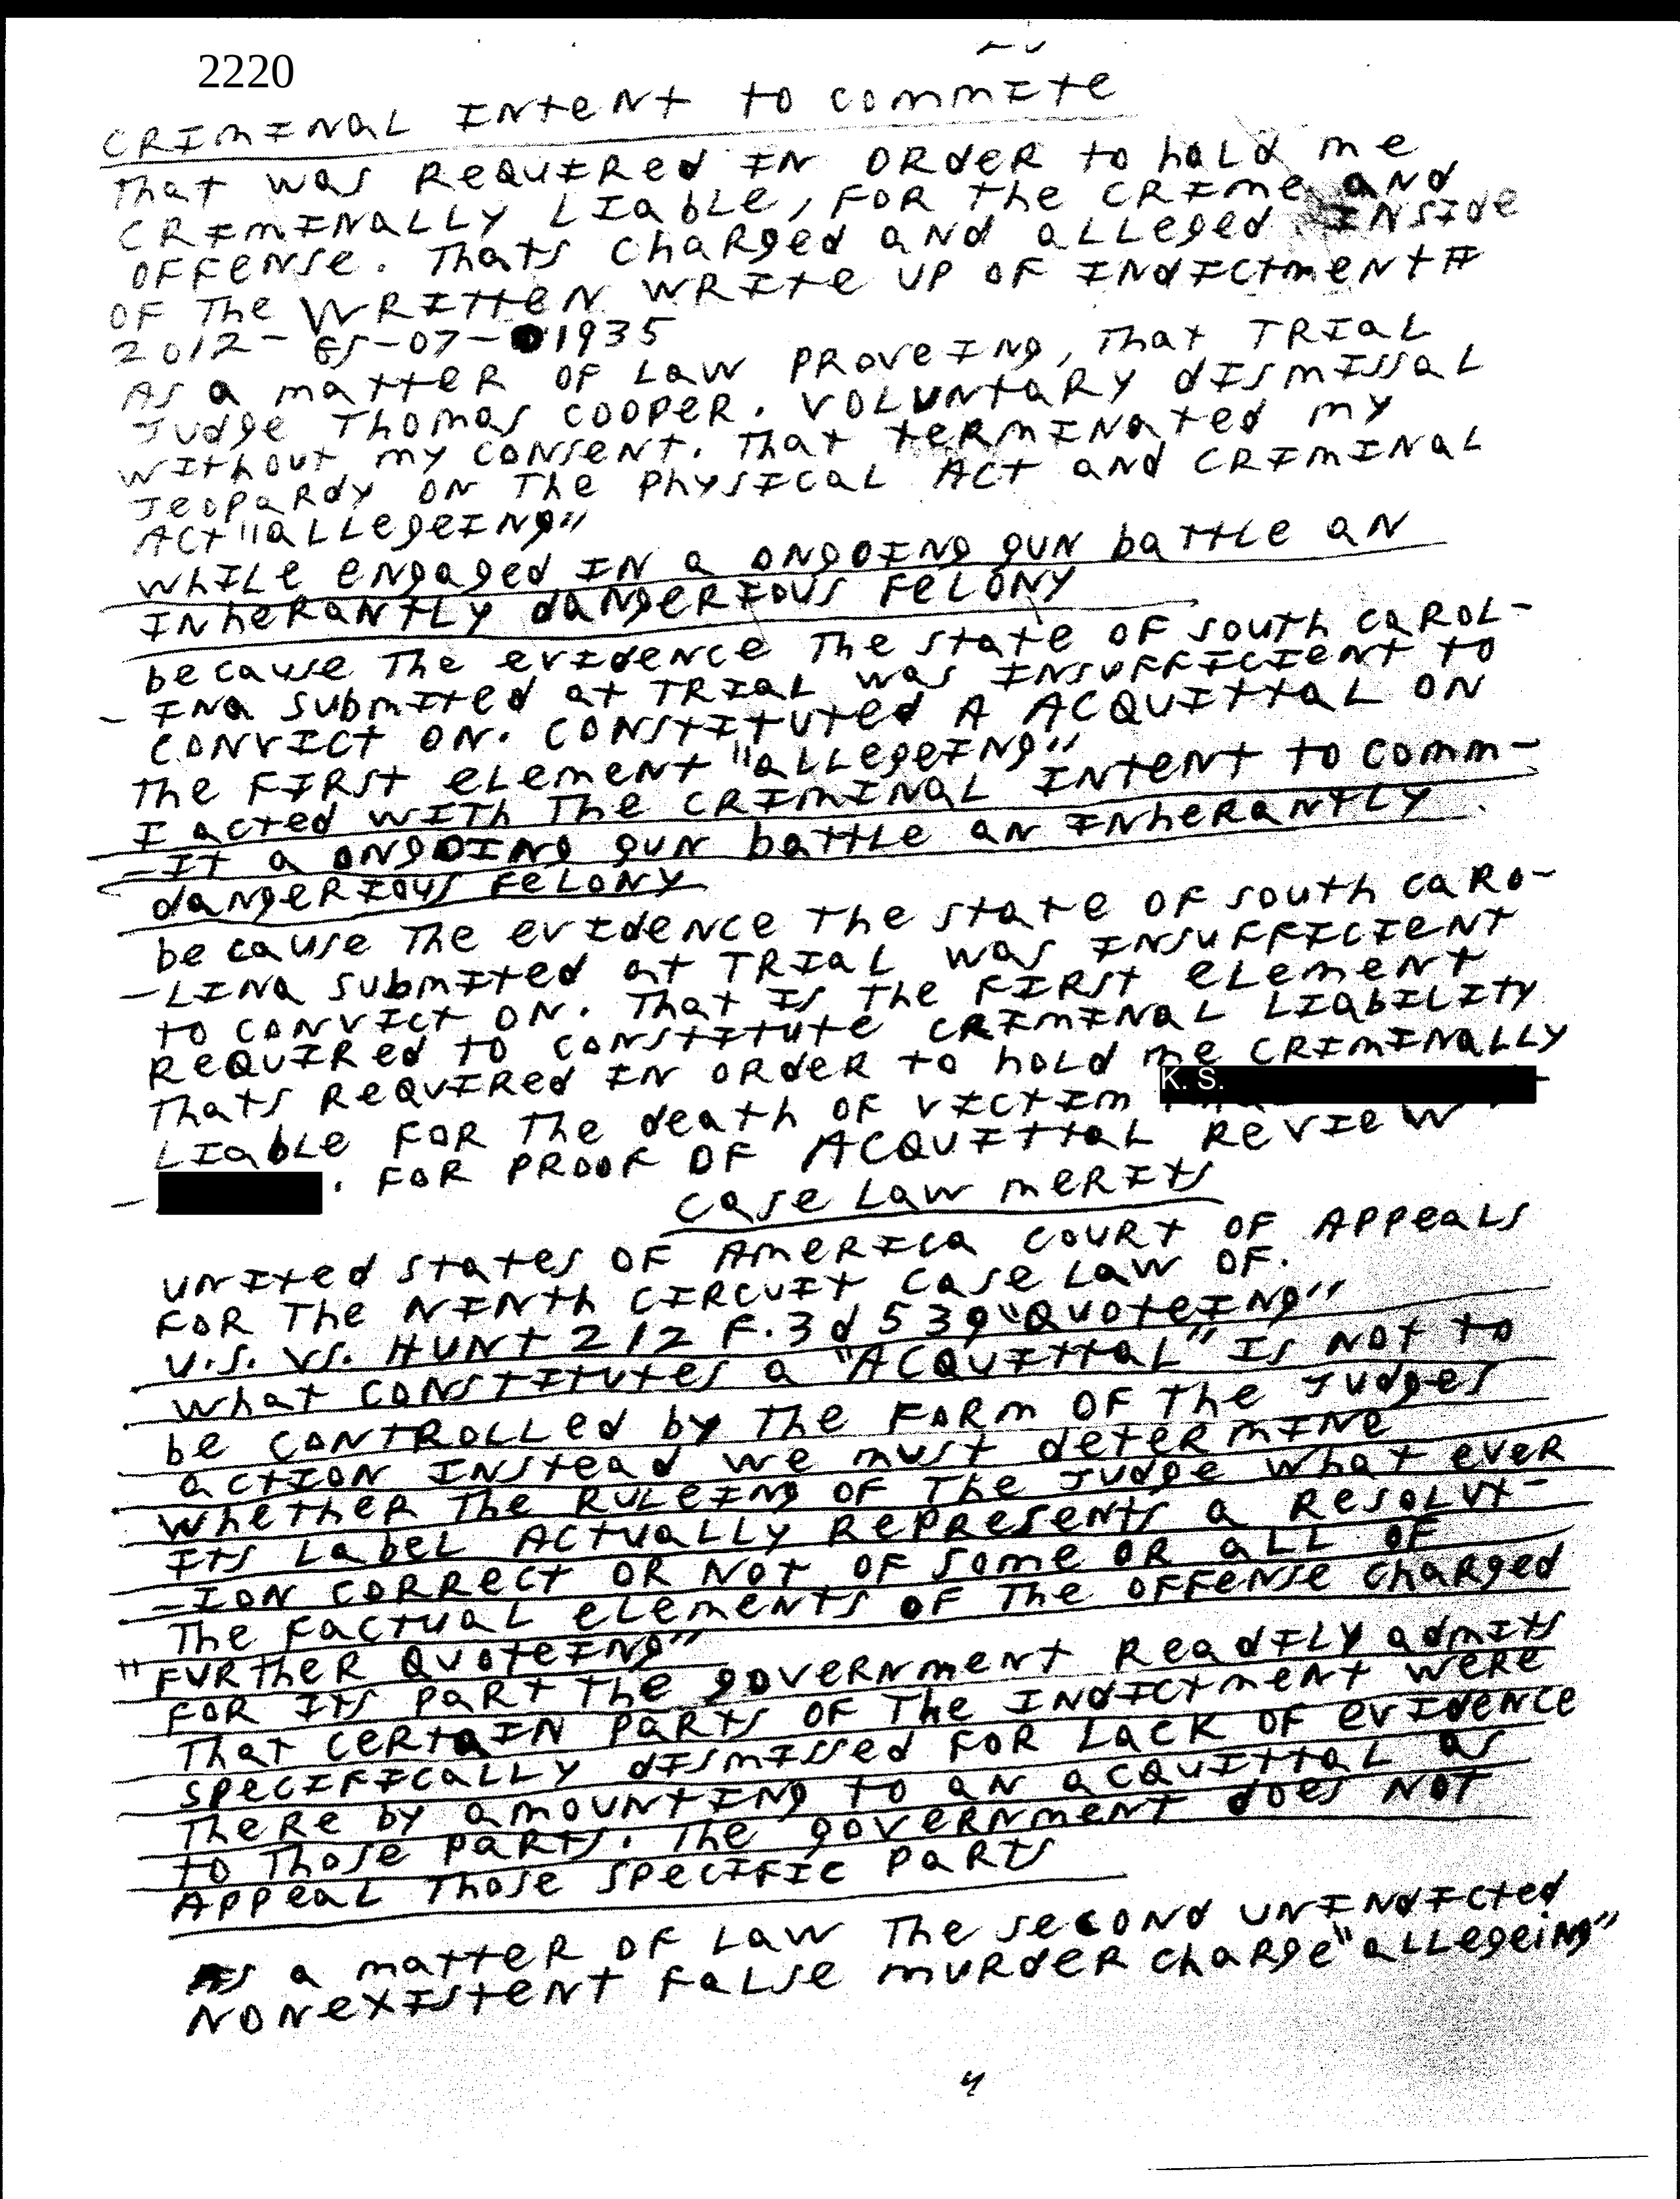 2220
CRIMINAL INTENT TO COMMITE
THAT WAS REQUIRED IN ORDER TO HOLD ME
CRIMINALLY LIABLE, FOR THE CRIME AND
OFFENSE. THATS CHARGED AND ALLEGED INSIDE
OF THE WRITTEN WRITE UP OF INDICTMENT#
2012-GS-07-01935
AS A MATTER OF LAW PROVEING, THAT TRIAL
JUDGE THOMAS COOPER. VOLUNTARY DISMISSAL
WITHOUT MY CONSENT. THAT TERMINATED MY
JEOPARDY ON THE PHYSICAL ACT AND CRIMINAL
ACT "ALLEGEING"
WHILE ENGAGED IN A ONGOING GUN BATTLE AN
INHERANTLY DANGERIOUS FELONY
BECAUSE THE EVIDENCE THE STATE OF SOUTH CAROL-
-INA SUBMITED AT TRIAL WAS INSUFFICIENT TO
CONVICT ON. CONSTITUTED A ACQUITTAL ON
THE FIRST ELEMENT "ALLEGEING"
I ACTED WITH THE CRIMINAL INTENT TO COMM-
-IT A ONGOING GUN BATTLE AN INHERANTLY
DANGERIOUS FELONY
BECAUSE THE EVIDENCE THE STATE OF SOUTH CARO-
-LINA SUBMITED AT TRIAL WAS INSUFFICIENT
TO CONVICT ON. THAT IS THE FIRST ELEMENT
REQUIRED TO CONSTITUTE CRIMINAL LIABILITY
THATS REQUIRED IN ORDER TO HOLD ME CRIMINALLY
LIABLE FOR THE DEATH OF VICTIM K. S.
-. FOR PROOF OF ACQUITTAL REVIEW
CASE LAW MERITS
UNITED STATES OF AMERICA COURT OF APPEALS
FOR THE NINTH CIRCUIT CASE LAW OF.
U.S. VS. HUNT 212 F.3d 539 "QUOTEING"
WHAT CONSTITUTES A "ACQUITTAL" IS NOT TO
BE CONTROLLED BY THE FORM OF THE JUDGES
ACTION INSTEAD WE MUST DETERMINE
WHETHER THE RULEING OF THE JUDGE WHAT EVER
ITS LABEL ACTUALLY REPRESENTS A RESOLUT-
-ION CORRECT OR NOT OF SOME OR ALL OF
THE FACTUAL ELEMENTS OF THE OFFENSE CHARGED
"FURTHER QUOTEING"
FOR ITS PART THE GOVERNMENT READILY ADMITS
THAT CERTAIN PARTS OF THE INDICTMENT WERE
SPECIFICALLY DISMISSED FOR LACK OF EVIDENCE
THERE BY AMOUNTING TO AN ACQUITTAL AS
TO THOSE PARTS. THE GOVERNMENT DOES NOT
APPEAL THOSE SPECIFIC PARTS
AS A MATTER OF LAW THE SECOND UNINDICTED
NONEXISTENT FALSE MURDER CHARGE "ALLEGEING"
4